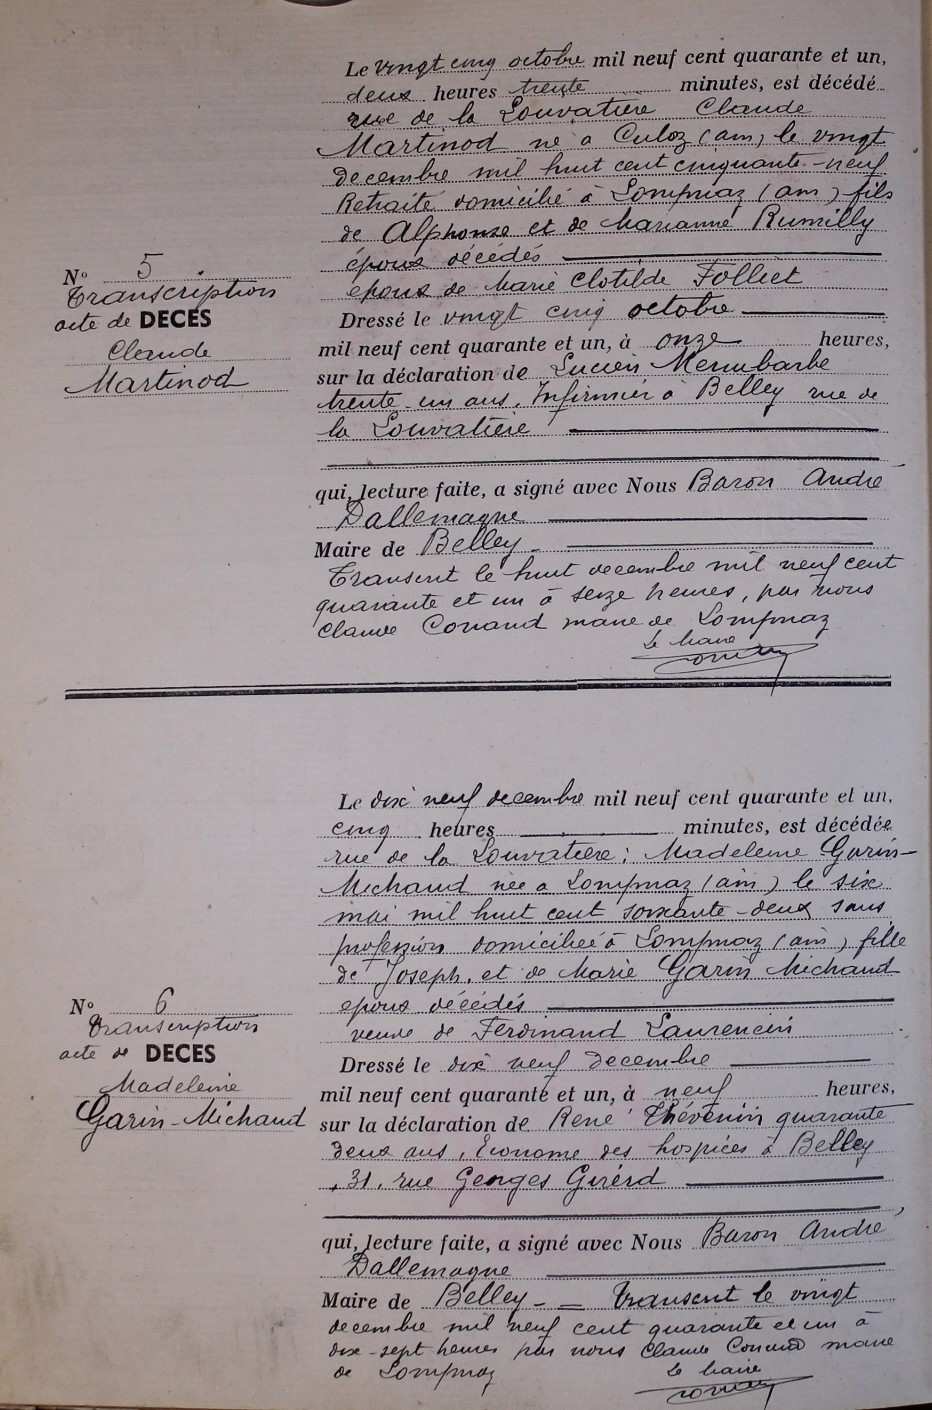 N° 5
Transcription
acte de DECES
Claude
Martinod
Le vingt cinq octobre mil neuf cent quarante et un,
deux heures trente minutes, est décédé
rue de la Louvatière Claude
Martinod né à Culoz (ain) le vingt
decembre mil huit cent cinquante-neuf
Retraité domicilié à Lompnaz (ain) fils
de Alphonse et de Marianne Rumilly
époux décédés
epoux de Marie Clotilde Folliet
Dressé le vingt cinq octobre
mil neuf cent quarante et un, à onze heures,
sur la déclaration de Lucien Mermbarbe
trente-un ans, Infirmier à Belley rue de
la Louvatière
qui, lecture faite, a signé avec Nous Baron André
Dallemagne
Maire de Belley
Transcrit le huit decembre mil neuf cent
quarante et un à seize heures, par nous
Claude Conand maire de Lompnaz
Le Maire
N° 6
Transcription
acte de DECES
Madeleine
Garin-Michaud
Le dix neuf decembre mil neuf cent quarante et un,
cinq heures minutes, est décédée
rue de la Louvatière; Madeleine Garin-
Michaud née à Lompnaz (ain) le six
mai mil huit cent soixante-deux sans
profession domiciliée à Lompnaz (ain) fille
de Joseph, et de Marie Garin Michaud
epoux décédés
veuve de Ferdinand Laurencin
Dressé le dix neuf decembre
mil neuf cent quarante et un, à neuf heures,
sur la déclaration de René Thévenin quarante
deux ans, Econome des hospices à Belley
, 31, rue Georges Girerd
qui, lecture faite, a signé avec Nous Baron André
Dallemagne
Maire de Belley - = Transcrit le vingt
decembre mil neuf cent quarante et un à
dix-sept heures par nous Claude Conand maire
de Lompnaz Le Maire